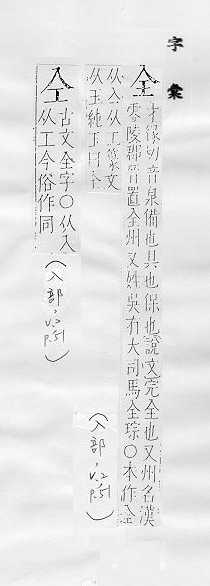 字彙
全 才緣切音泉備也具也保也說文完全也又州名漢
零陵郡晉置全州又姓吳有大司馬全琮〇本作仝
从入从工篆文
从玉純玉曰全
(入部,v.2
p.51)
仝 古文全字〇从入
从工今俗作同
(入部,v.2
p.51)